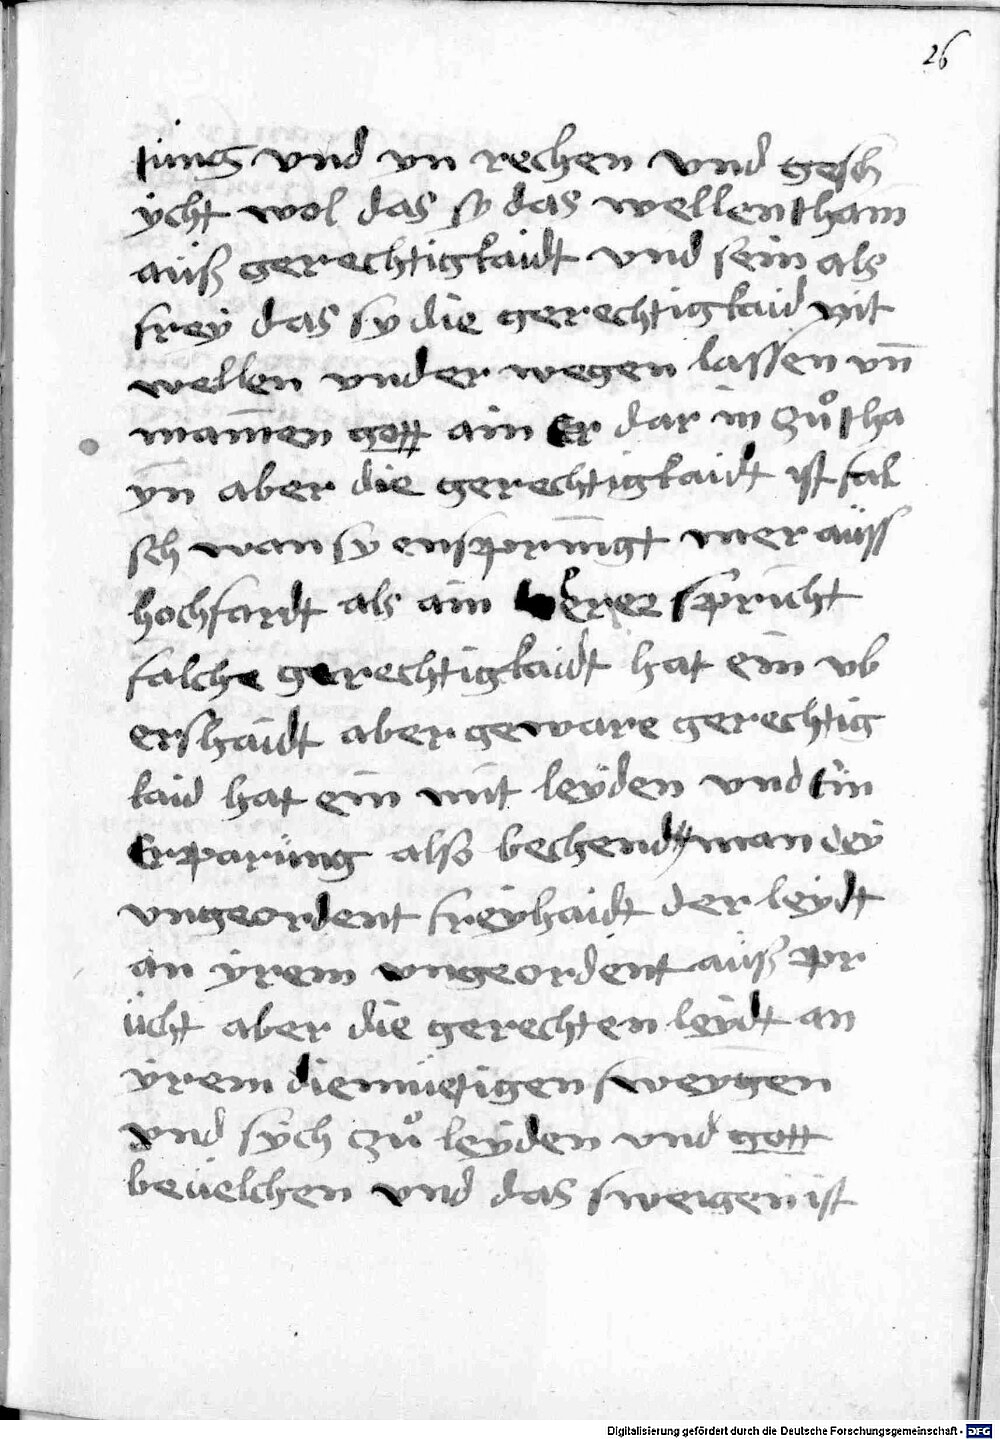 26
iüng vnd vn rechen vnd gesch
ÿcht wol das sy das wellen tham̄
aüß gerechtigkaidt vnd sein als
freÿ das sy die gerechtigkaid nit
wellen vnder wegen lassen vn̄
mam̄en gott ain er dar in zuͦ tha
ÿn aber die gerechtigkaidt ist fal
sch wan sy ensprin̄gt mer aüss
hochfardt als ain lerer spricht
falche gerechtigkaidt hat ein vb
ershaidt aber geware gerechtig
kaid hat ein mit leÿden vnd ein
Erparüng also bechendt man deÿ
vngeordent freÿhaidt der leÿdt
an ÿrem vngeordent aüß spr
ücht aber die gerechten leÿdt an
ÿrem diemüetigen sweÿgen
vnd sÿch zuͦ leÿden vnd gott
beüelchen vnd das sweigen ist
Digitalisierung gefördert durch die Deutsche Forschungsgemeinschaft - DFG